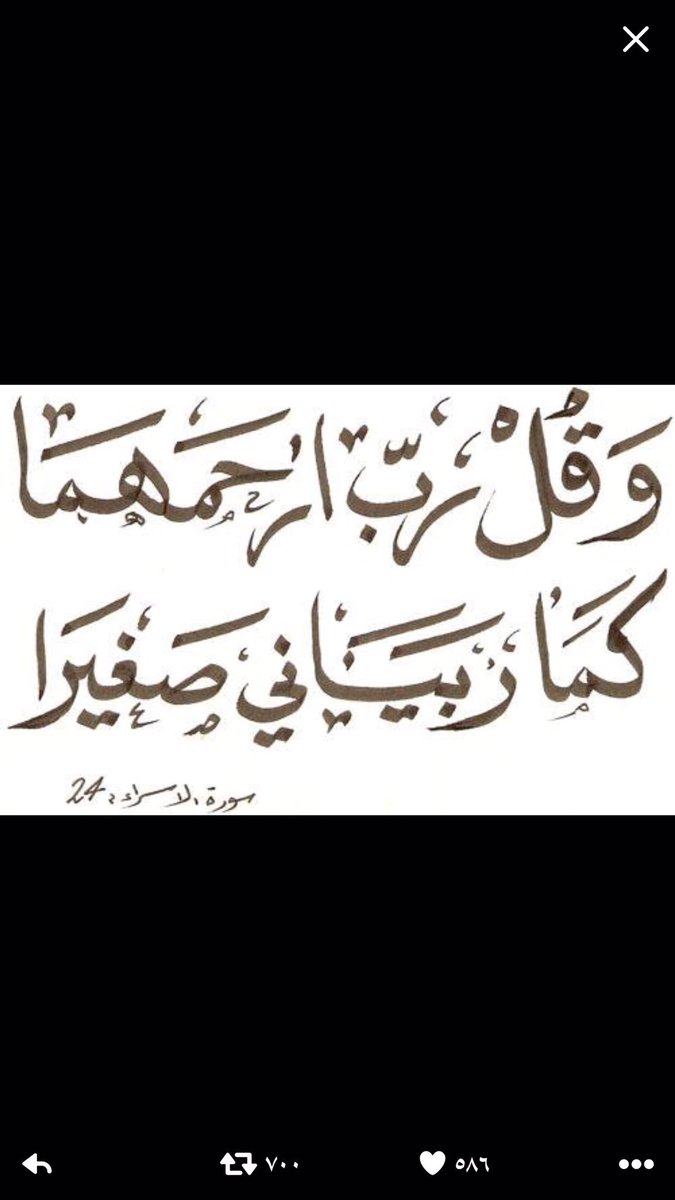 وَقُلْ رَبِّ ارْحَمْهُمَا
كَمَا رَبَّيَانِي صَغِيرًا
سورة الاسراء: 24
٧٠٠ ٥٨٦